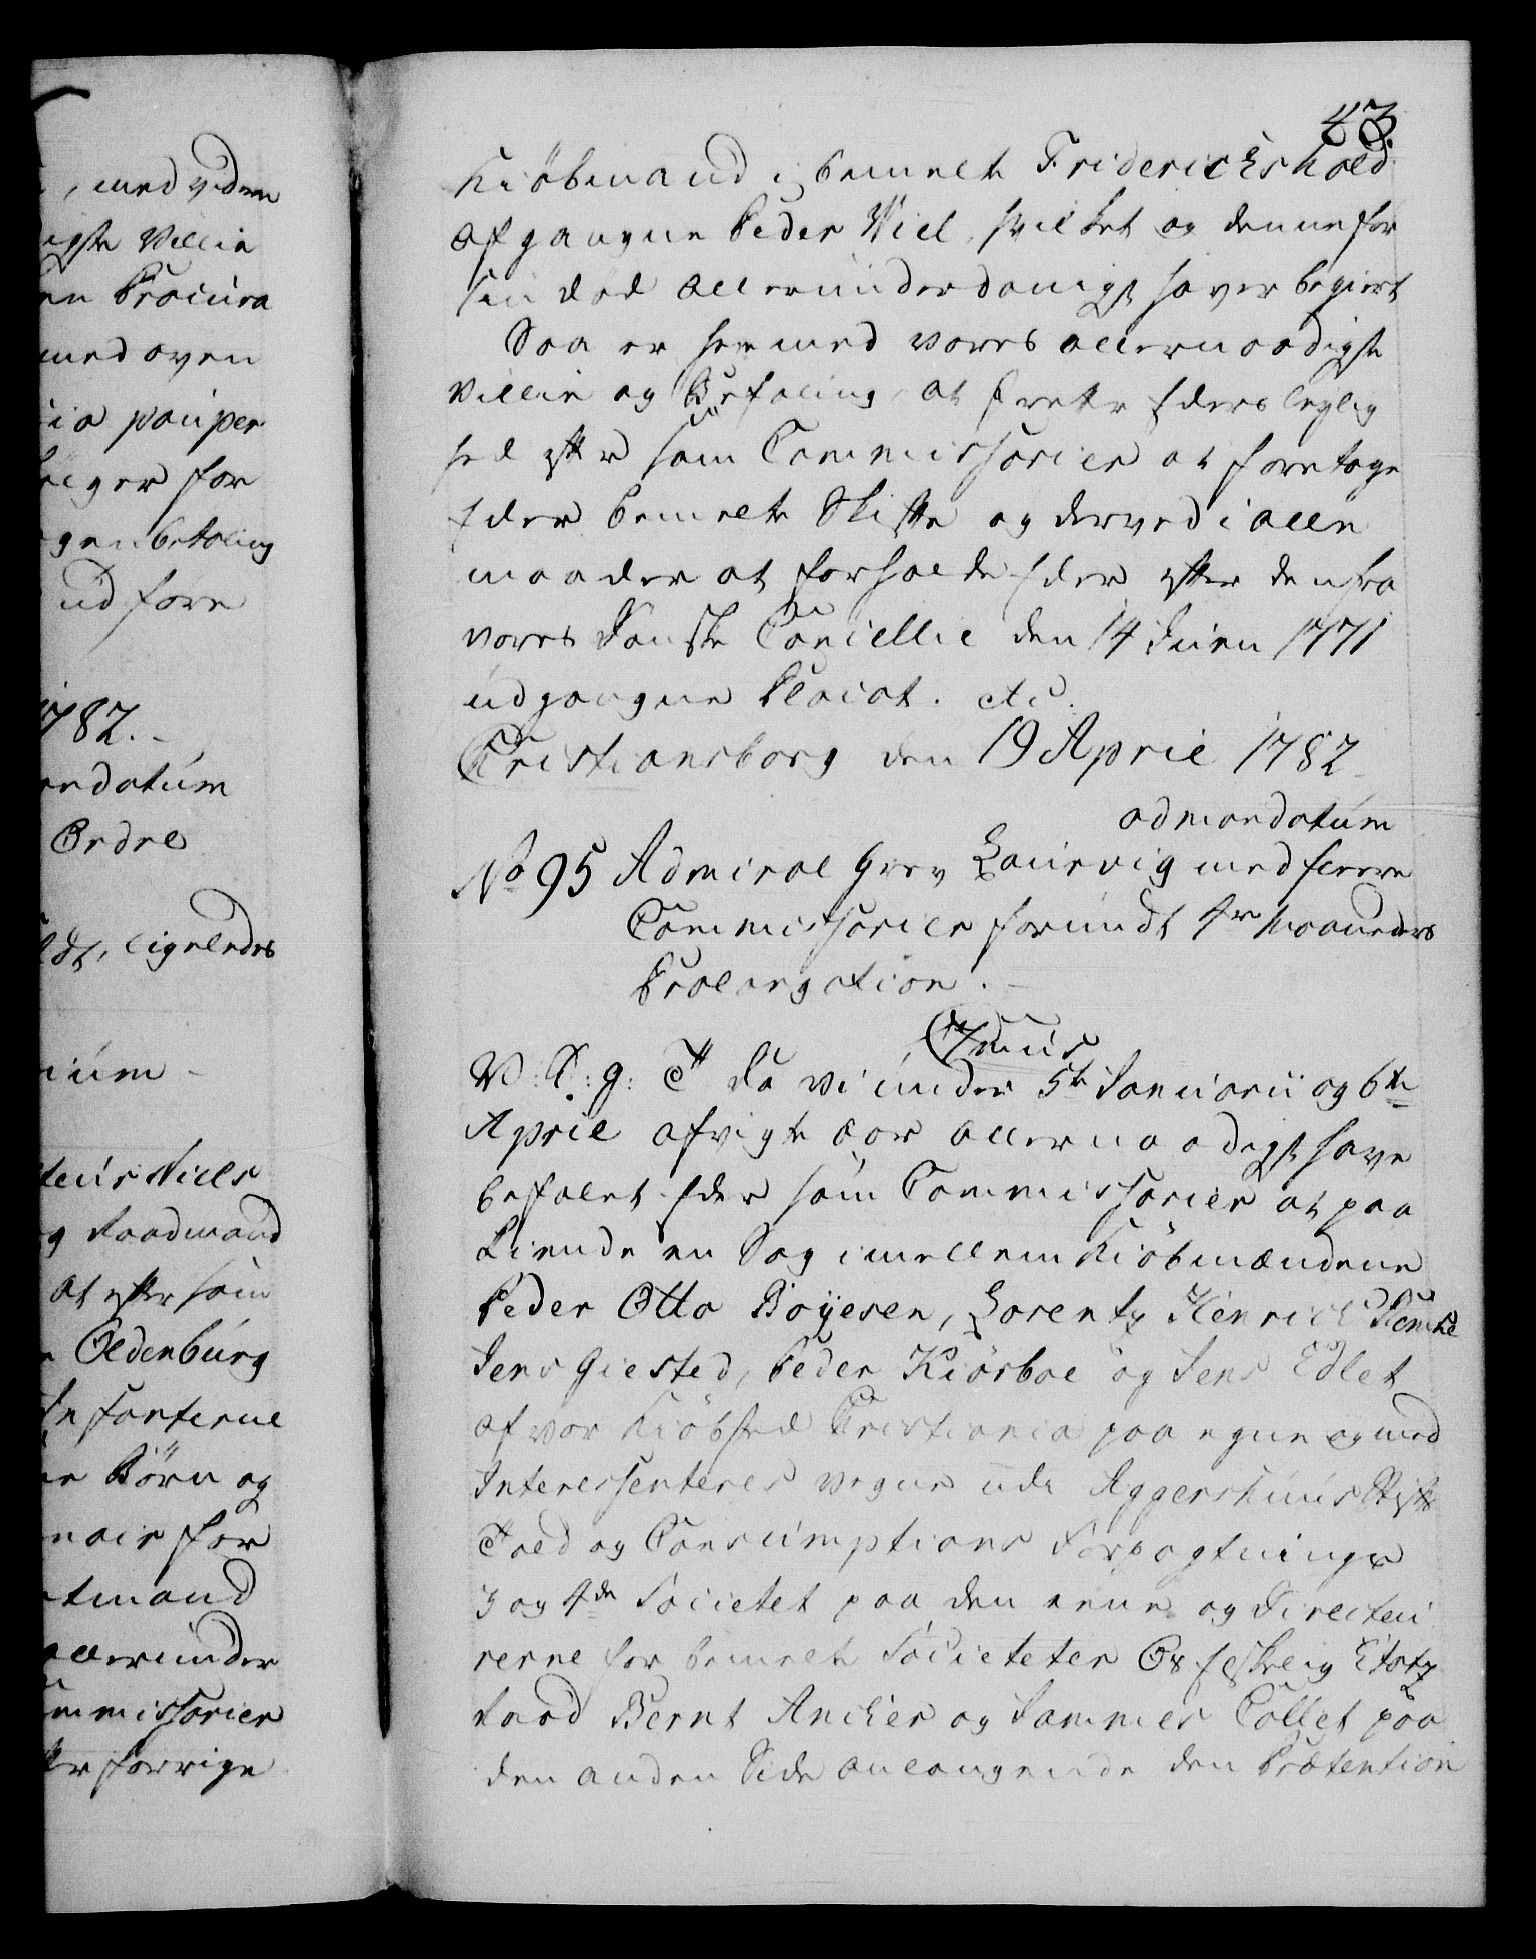 , med viden
igste Villie
en Procura
med oven
ia pauper
ølger for
gen betaling
ud fore
1782.
andatum
Ordre
ldt, ligeledes
ium
teus Niels
g Raadmand
at efter som
n Oldenburg
forterne
er Børn og
nais for
tmand
allerunder
ommissarier
forrige
43
Kiöbmand i bemelte Friderichshald
afgangne Peder Wiel, hvilket og denne for
sin död allerunderdanigst haver begiert
Saa er hermed vores allernaadigste
Villie og Befaling, at I rette Eders leylig
hed efter som Commissarier at foretage
Eder bemelte Skifte og derved i alle
maader at forholde Eder efter den fra
vores Danske Cancellie den 14 Juni 1771
udgangne Placat. etc.
Christiansborg den 19 April 1782
ad mandatum
No 95 Admiral Grev Laurvig med fleere
Commissarier forundt 4re Maaneders
Prolongation.
C 7mus
V: S: g: T Da vi under 5te Januarii og 6te
April afvigte aar allernaadigst have
befalet Eder som Commissarier at paa
kiende en Sag imellem Kiöbmændene
Peder Otto Boyesen, Lorentz Henrich
Jens Giested, Peder Kiörboe og Jens Edlet
af vor Kiöbsted Christiania paa egne og med
Interessenteres vegne udi Aggershuus Stifts
Told og Consumptions Forpagtninge
3 og 4de Societet paa den eene og Directeu
rerne for bemelte Societeter Os Elskelig Etatz
Raad Bernt Ancher og Jammes Collet paa
den anden Side anlangende den Prætention